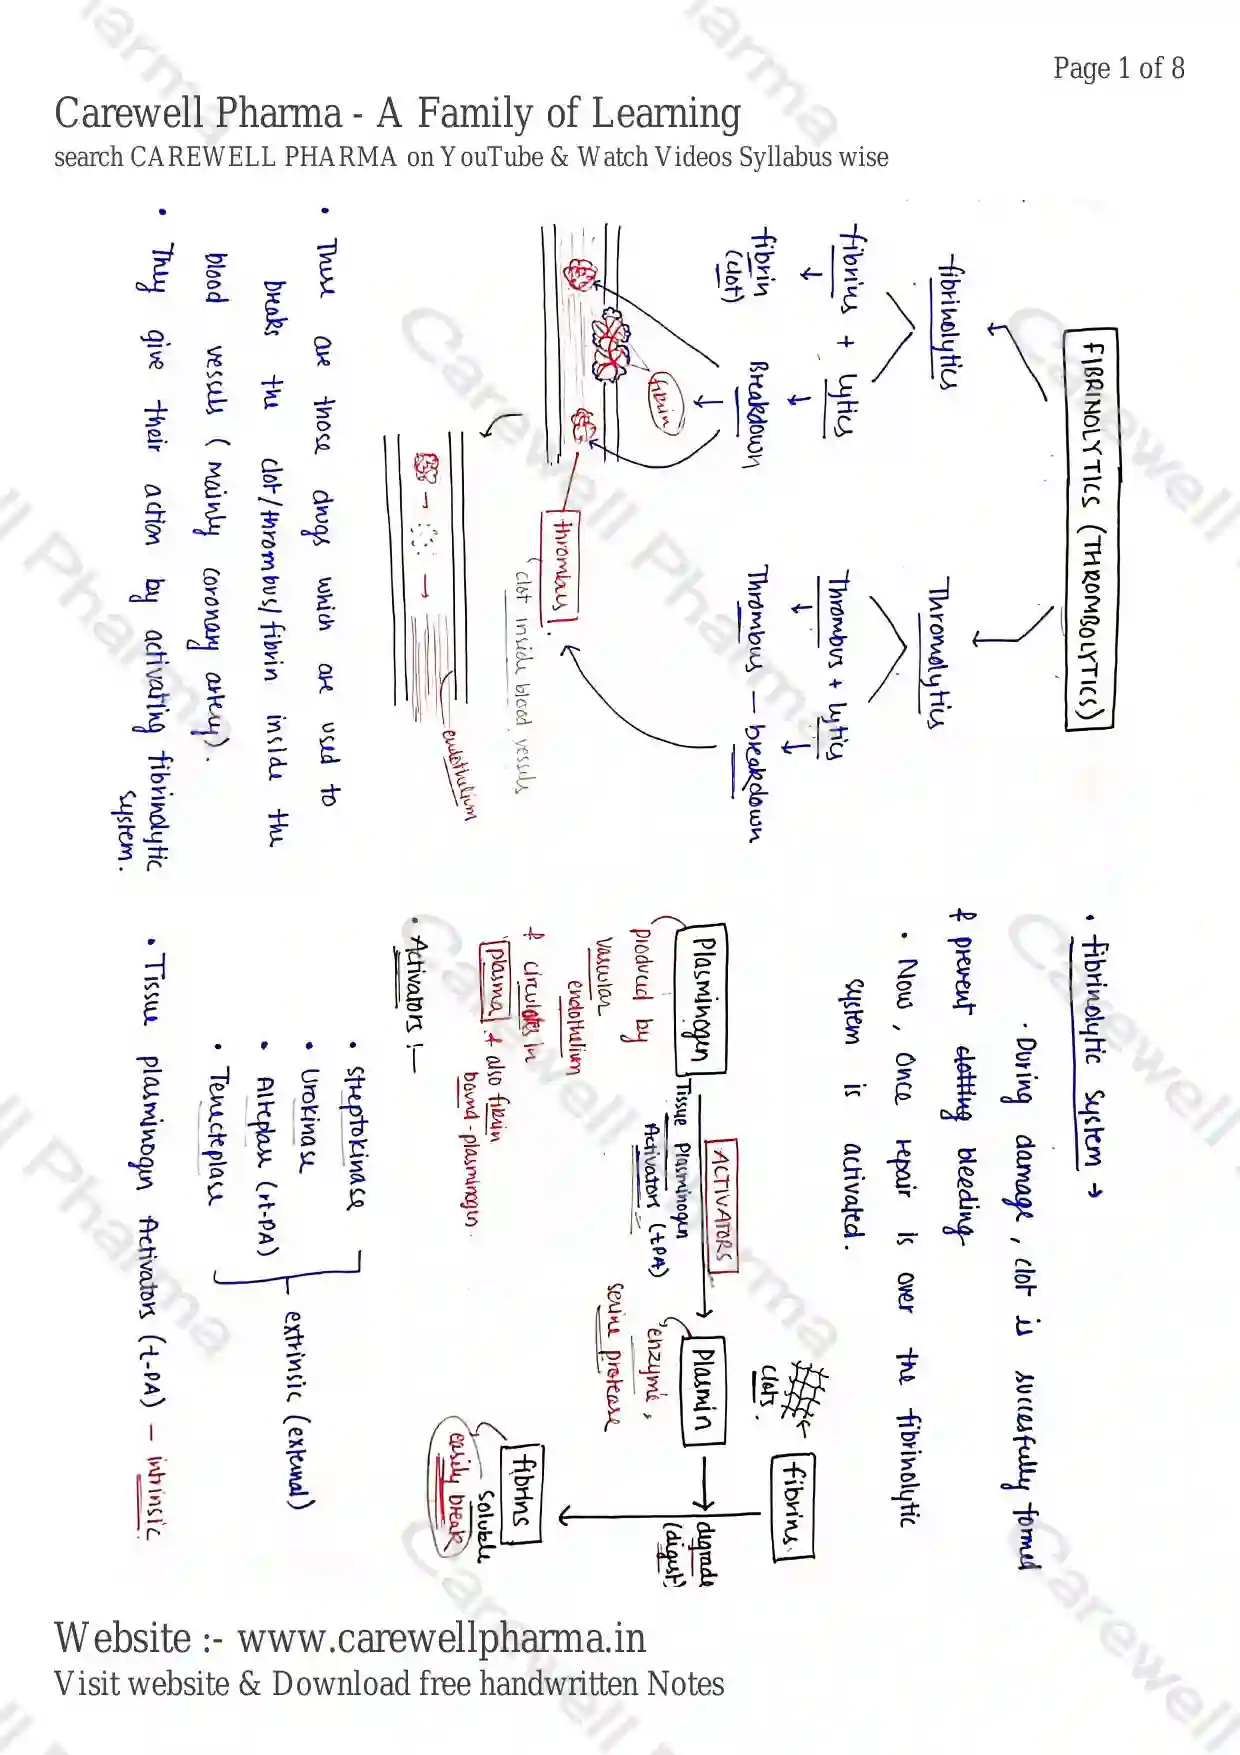 Page 1 of 8
Carewell Pharma - A Family of Learning
search CAREWELL PHARMA on YouTube & Watch Videos Syllabus wise
FIBRINOLYTICS (THROMBOLYTICS)
fibrinolytics
Thromolytics
fibrins + lytics
Thrombus + lytics
fibrin Breakdown
(clot)
Thrombus – breakdown
fibrin
thrombus
clot inside blood vessels
endothelium
• These are those drugs which are used to
breaks the clot/thrombus/fibrin inside the
blood vessels (mainly coronary artery).
• They give their action by activating fibrinolytic
system.
• fibrinolytic system →
• During damage, clot is succesfully formed
& prevent clotting bleeding
• Now, once repair is over the fibrinolytic
system is activated.
clots.
fibrins.
ACTIVATORS
Plasminogen
Tissue Plasminogen
Activators (tPA)
Plasmin
degrade
(digest)
produced by
vascular
endothelium
& circulates in
plasma & also fibrin
bound-plasminogen
enzyme,
serine protease
fibrins
soluble
easily break
• Activators :–
• streptokinase
• Urokinase
• Alteplase (rt-PA)
• Tenecteplase
extrinsic (external)
• Tissue plasminogen Activators (t-PA) – intrinsic
Website :- www.carewellpharma.in
Visit website & Download free handwritten Notes
Carewell Pharma